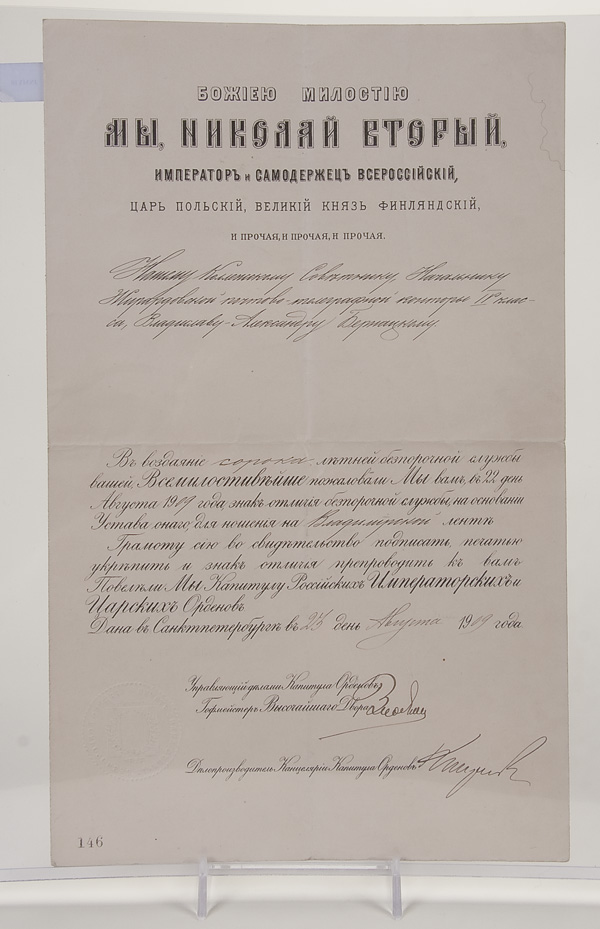 БОЖІЕЮ МИЛОСТІЮ
МЫ, НИКОЛАЙ ВТОРЫЙ,
ИМПЕРАТОРЪ и САМОДЕРЖЕЦЪ ВСЕРОССІЙСКІЙ,
ЦАРЬ ПОЛЬСКІЙ, ВЕЛИКІЙ КНЯЗЬ ФИНЛЯНДСКІЙ,
И ПРОЧАЯ, И ПРОЧАЯ, И ПРОЧАЯ.
Нашему Коллежскому Совѣтнику, Начальнику
Жирардовской почтово-телеграфной конторы IV клас-
са, Владиславу-Александру Бернацкому.
Въ воздаяніе сорока-лѣтней безпорочной службы
вашей, Всемилостивѣйше пожаловали Мы вамъ, въ 22 день
Августа 1909 года знакъ отличія безпорочной службы, на основаніи
Устава онаго, для ношенія на Владимірской лентѣ
Грамоту сію во свидѣтельство подписать, печатью
укрѣпить и знакъ отличія препроводить къ вамъ
Повелѣли Мы Капитулу Россійскихъ Императорскихъ и
Царскихъ Орденовъ.
Дана въ Санктпетербургѣ въ 25 день Августа 1909 года
Управляющій дѣлами Капитула Орденовъ,
Гофмейстеръ Высочайшаго Двора
Дѣлопроизводитель Канцеляріи Капитула Орденовъ
146